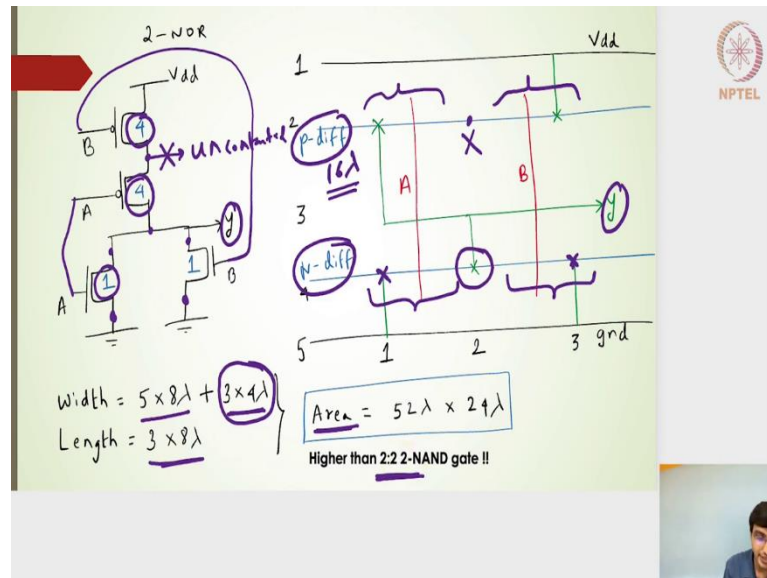 2-NOR
Vdd
B
4
uncontacted
A
4
y
A
1
1
B
1
Vdd
2
p-diff
X
16λ
A
B
3
y
n-diff
4
5
1
2
3
gnd
Width = 5x8λ + 3x4λ
Length = 3x8λ
Area = 52λ x 24λ
Higher than 2:2 2-NAND gate !!
NPTEL